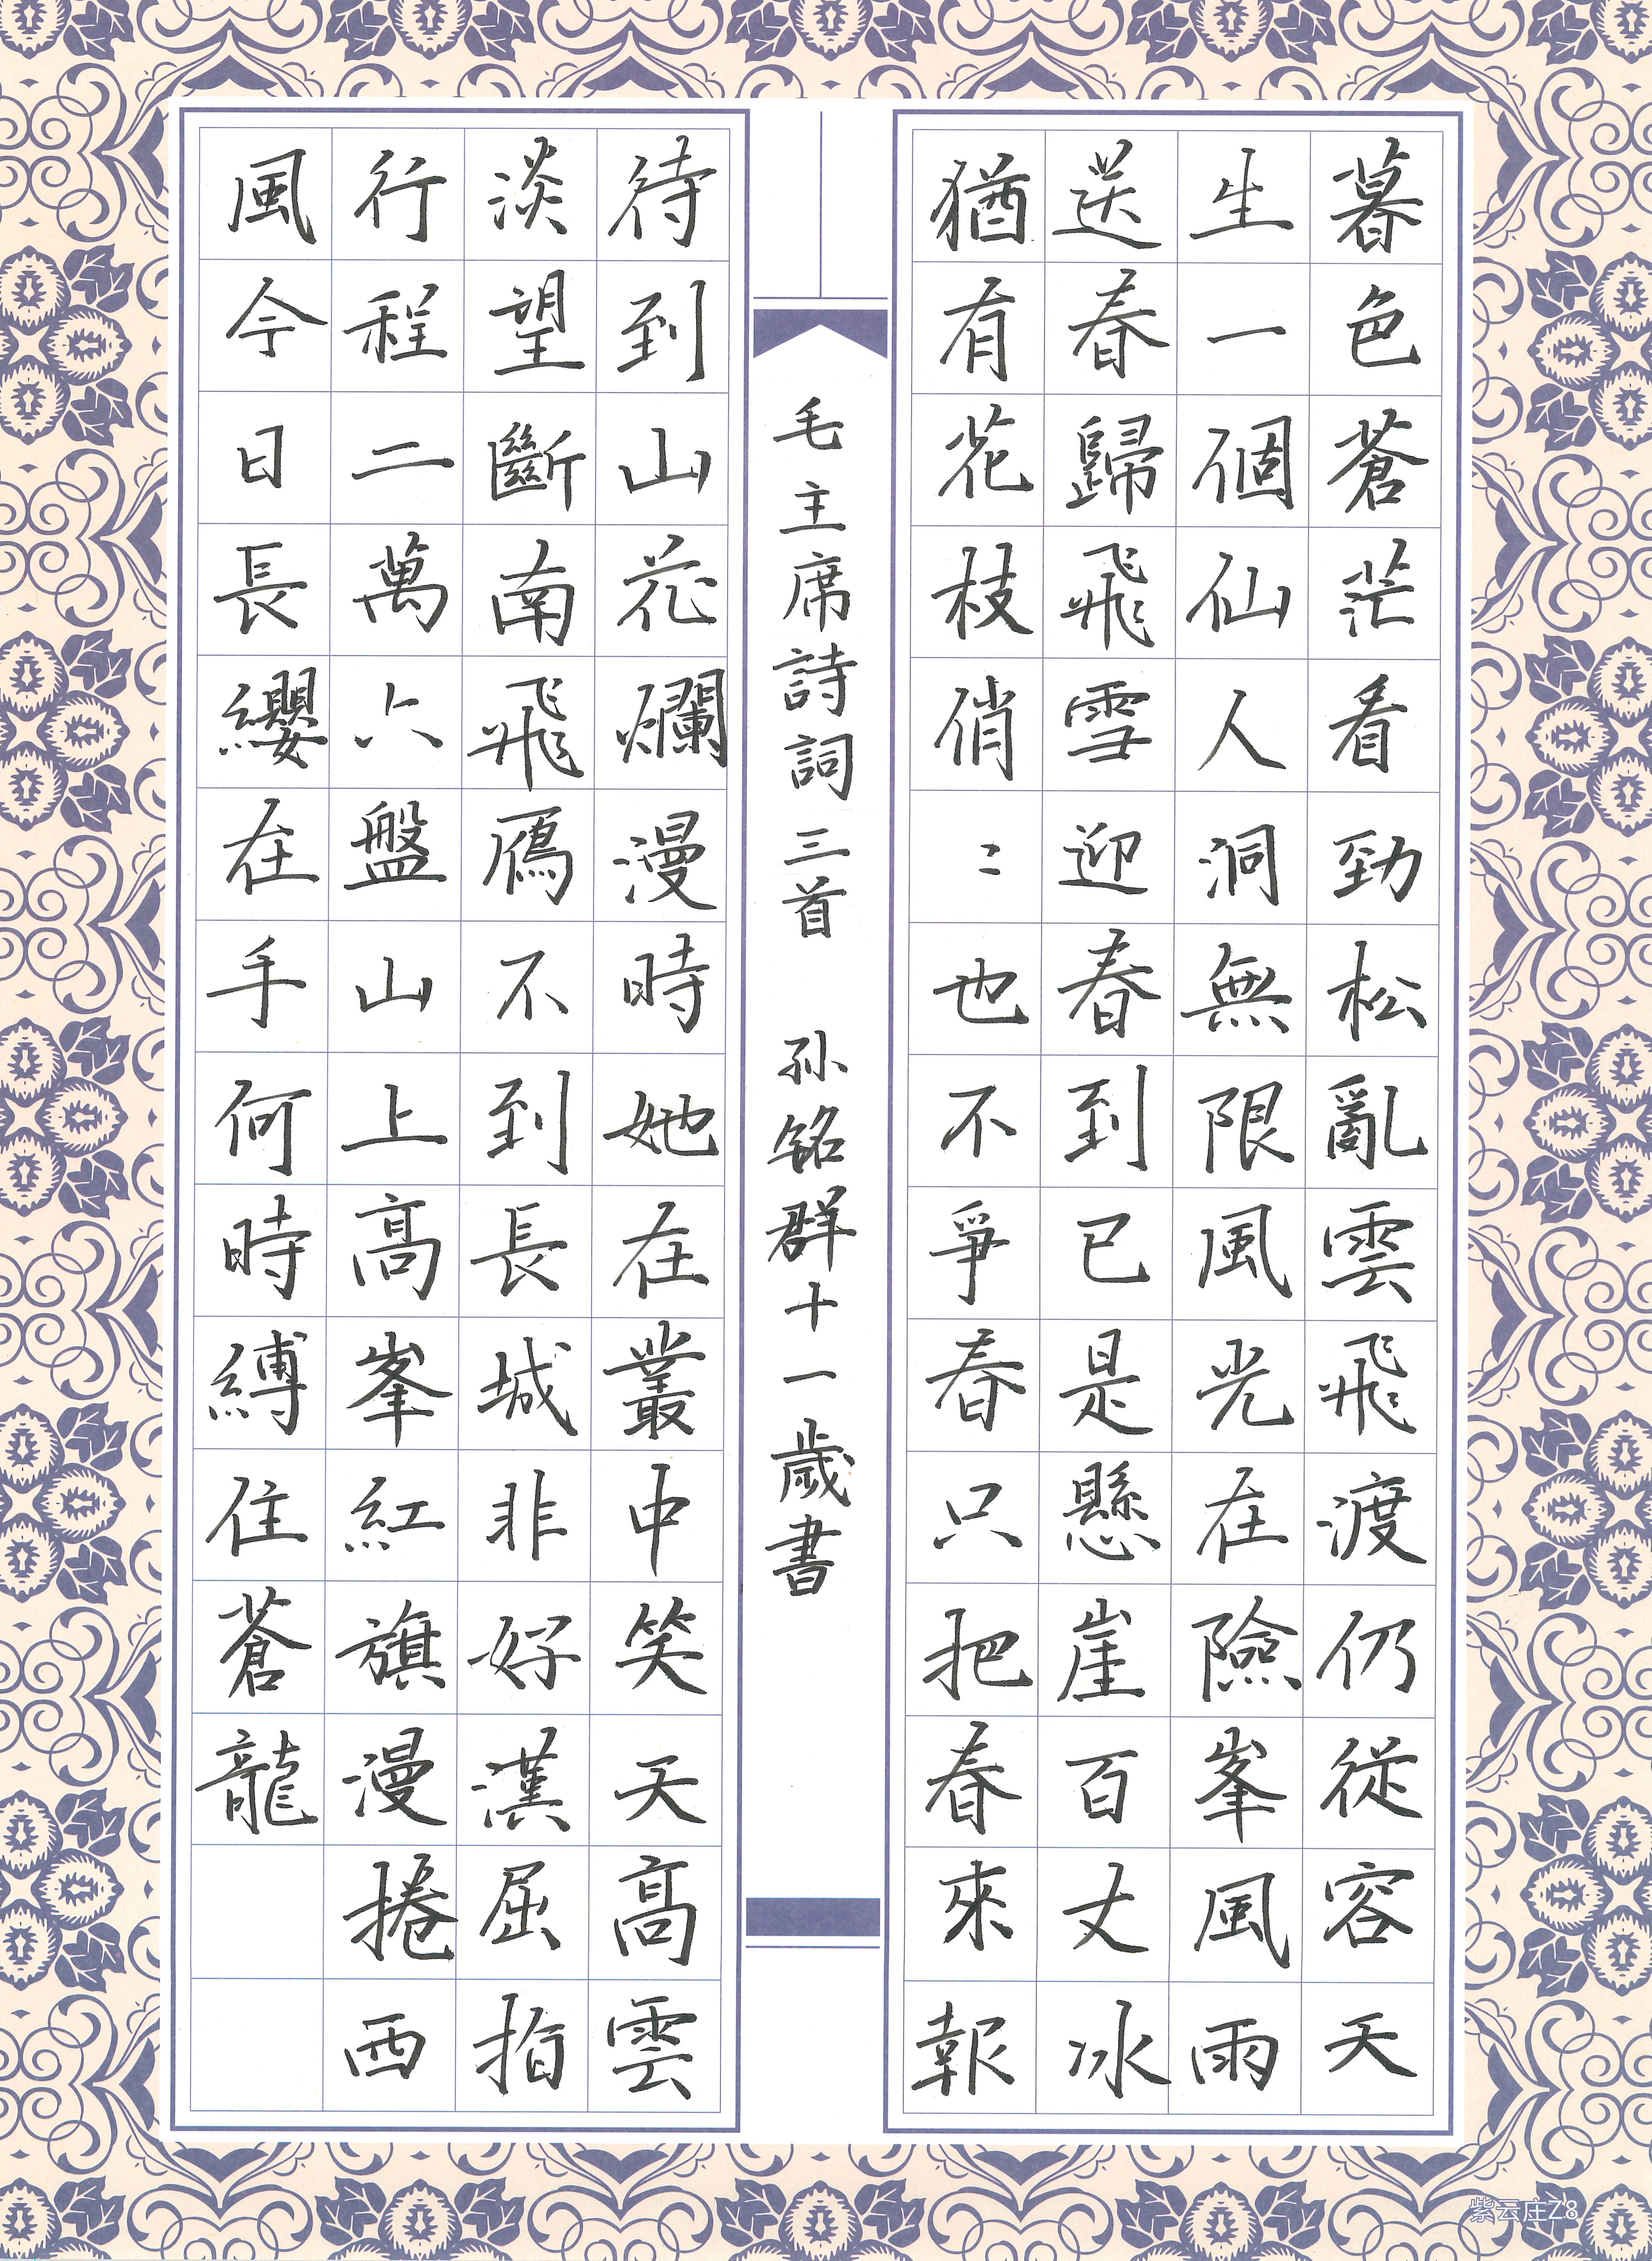 暮色蒼茫看勁松亂雲飛渡仍從容天
生一個仙人洞無限風光在險峯風雨
送春歸飛雪迎春到已是懸崖百丈冰
猶有花枝俏〻也不爭春只把春來報
毛主席詩詞三首 孙铭群十一歲書
待到山花爛漫時她在叢中笑天高雲
淡望斷南飛鴈不到長城非好漢屈指
行程二萬六盤山上高峯紅旗漫捲西
風今日長纓在手何時縛住蒼龍
紫云庄Z8